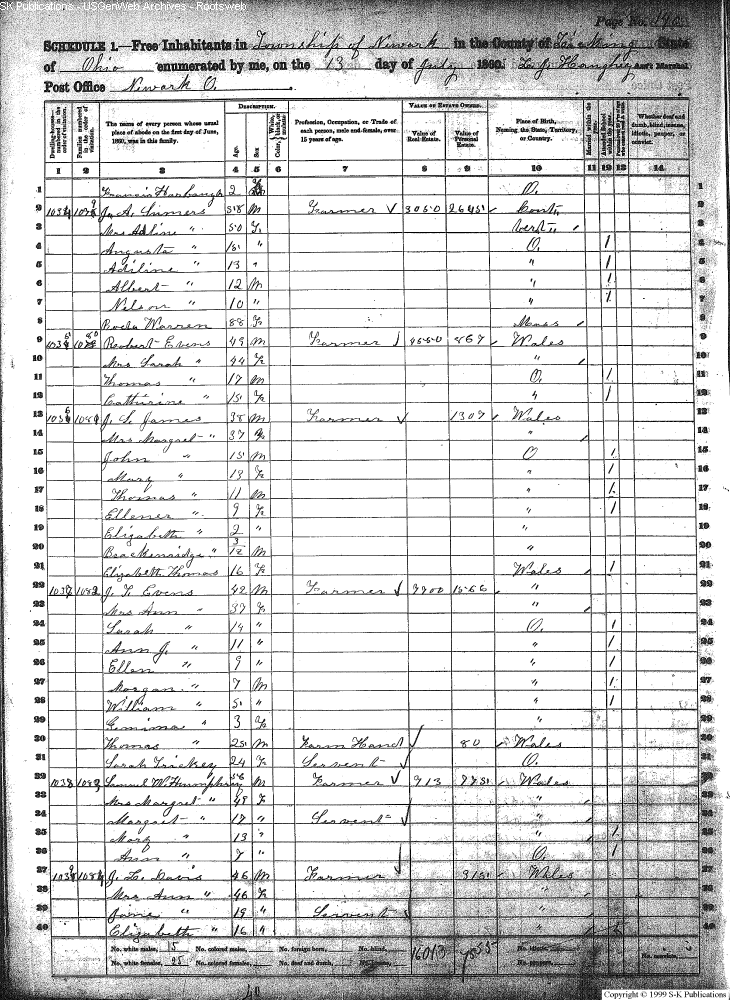 SK Publications - USGenWeb Archives - Rootsweb
Page No. 190
SCHEDULE 1.—Free Inhabitants in Township of Newark in the County of Licking State
of Ohio enumerated by me, on the 13 day of July 1860. Ass't Marshal
Post Office Newark O.
Dwelling-houses— numbered in the order of visitation.
Families numbered in the order of visitation.
The name of every person whose usual place of abode on the first day of June, 1860, was in this family.
DESCRIPTION.
Age.
Sex
Color, White, black, or mulatto
Profession, Occupation, or Trade of each person, male and female, over 15 years of age.
VALUE OF ESTATE OWNED.
Value of Real Estate.
Value of Personal Estate.
Place of Birth, Naming the State, Territory, or Country.
Married within the year.
Attended School within the year.
Whether deaf and dumb, blind, insane, idiotic, pauper, or convict.
1 2 3 4 5 6 7 8 9 10 11 12 13 14
1 Francis Harbaugh 2 O. 1
2 J. A. Simers 58 M Farmer 3050 Cont. 2
3 Mrs Adline " 50 F. Vert. 3
4 Augusta " 15 " O. 1 4
5 Adiline " 13 " " 1 5
6 Albert " 12 M " 1 6
7 Nelson " 10 " " 1 7
8 Warren 88 F. Mass 8
9 Robert Evens 49 M Farmer 4550 867 Wales 9
10 Mrs Sarah " 44 F. " 10
11 Thomas " 17 M O. 1 11
12 Catharine " 15 F. " 1 12
13 J. S. James 38 M Farmer 1307 Wales 13
14 Mrs Margret " 37 F. " 14
15 John " 15 M O 1 15
16 Mary " 13 F. " 1 16
17 Thomas " 11 M " 1 17
18 Ellener " 9 F. " 1 18
19 Elizabeth " 2 " " 19
20 Breckenridge " 3/12 M " 20
21 Elizabeth Thomas 16 F. Wales 1 21
22 J. T. Evens 42 M Farmer 1566 " 22
23 Mrs Ann " 37 F. " 23
24 Sarah " 14 " O. 1 24
25 Ann J. " 11 " " 1 25
26 Ellen " 9 " " 1 26
27 Morgan " 7 M " 1 27
28 William " 5 " " 1 28
29 Gemima " 3 F. " 29
30 Thomas " 25 M Farm Hand 80 Wales 30
31 Sarah Trickey 24 F. Servent O. 31
32 Samuel W. Humphrey 58 M Farmer 913 Wales
Mrs Margret " 48 F. "
Margret " 17 " Servent "
Mary " 13 " " 1
Ann " 7 " O. 1
J. L. Davis 46 M Farmer 3151 Wales
Mrs Ann " 46 F. "
Jane " 19 " Servent "
40 Elizabeth " 16 " " 40
No. white males, 15 No. colored males, No. foreign born, No. blind, 16013 7555 No. idiotic,
No. white females, 25 No. colored females, No. deaf and dumb, No. insane, No. paupers, No. convicts,
40
Copyright © 1999 S-K Publications